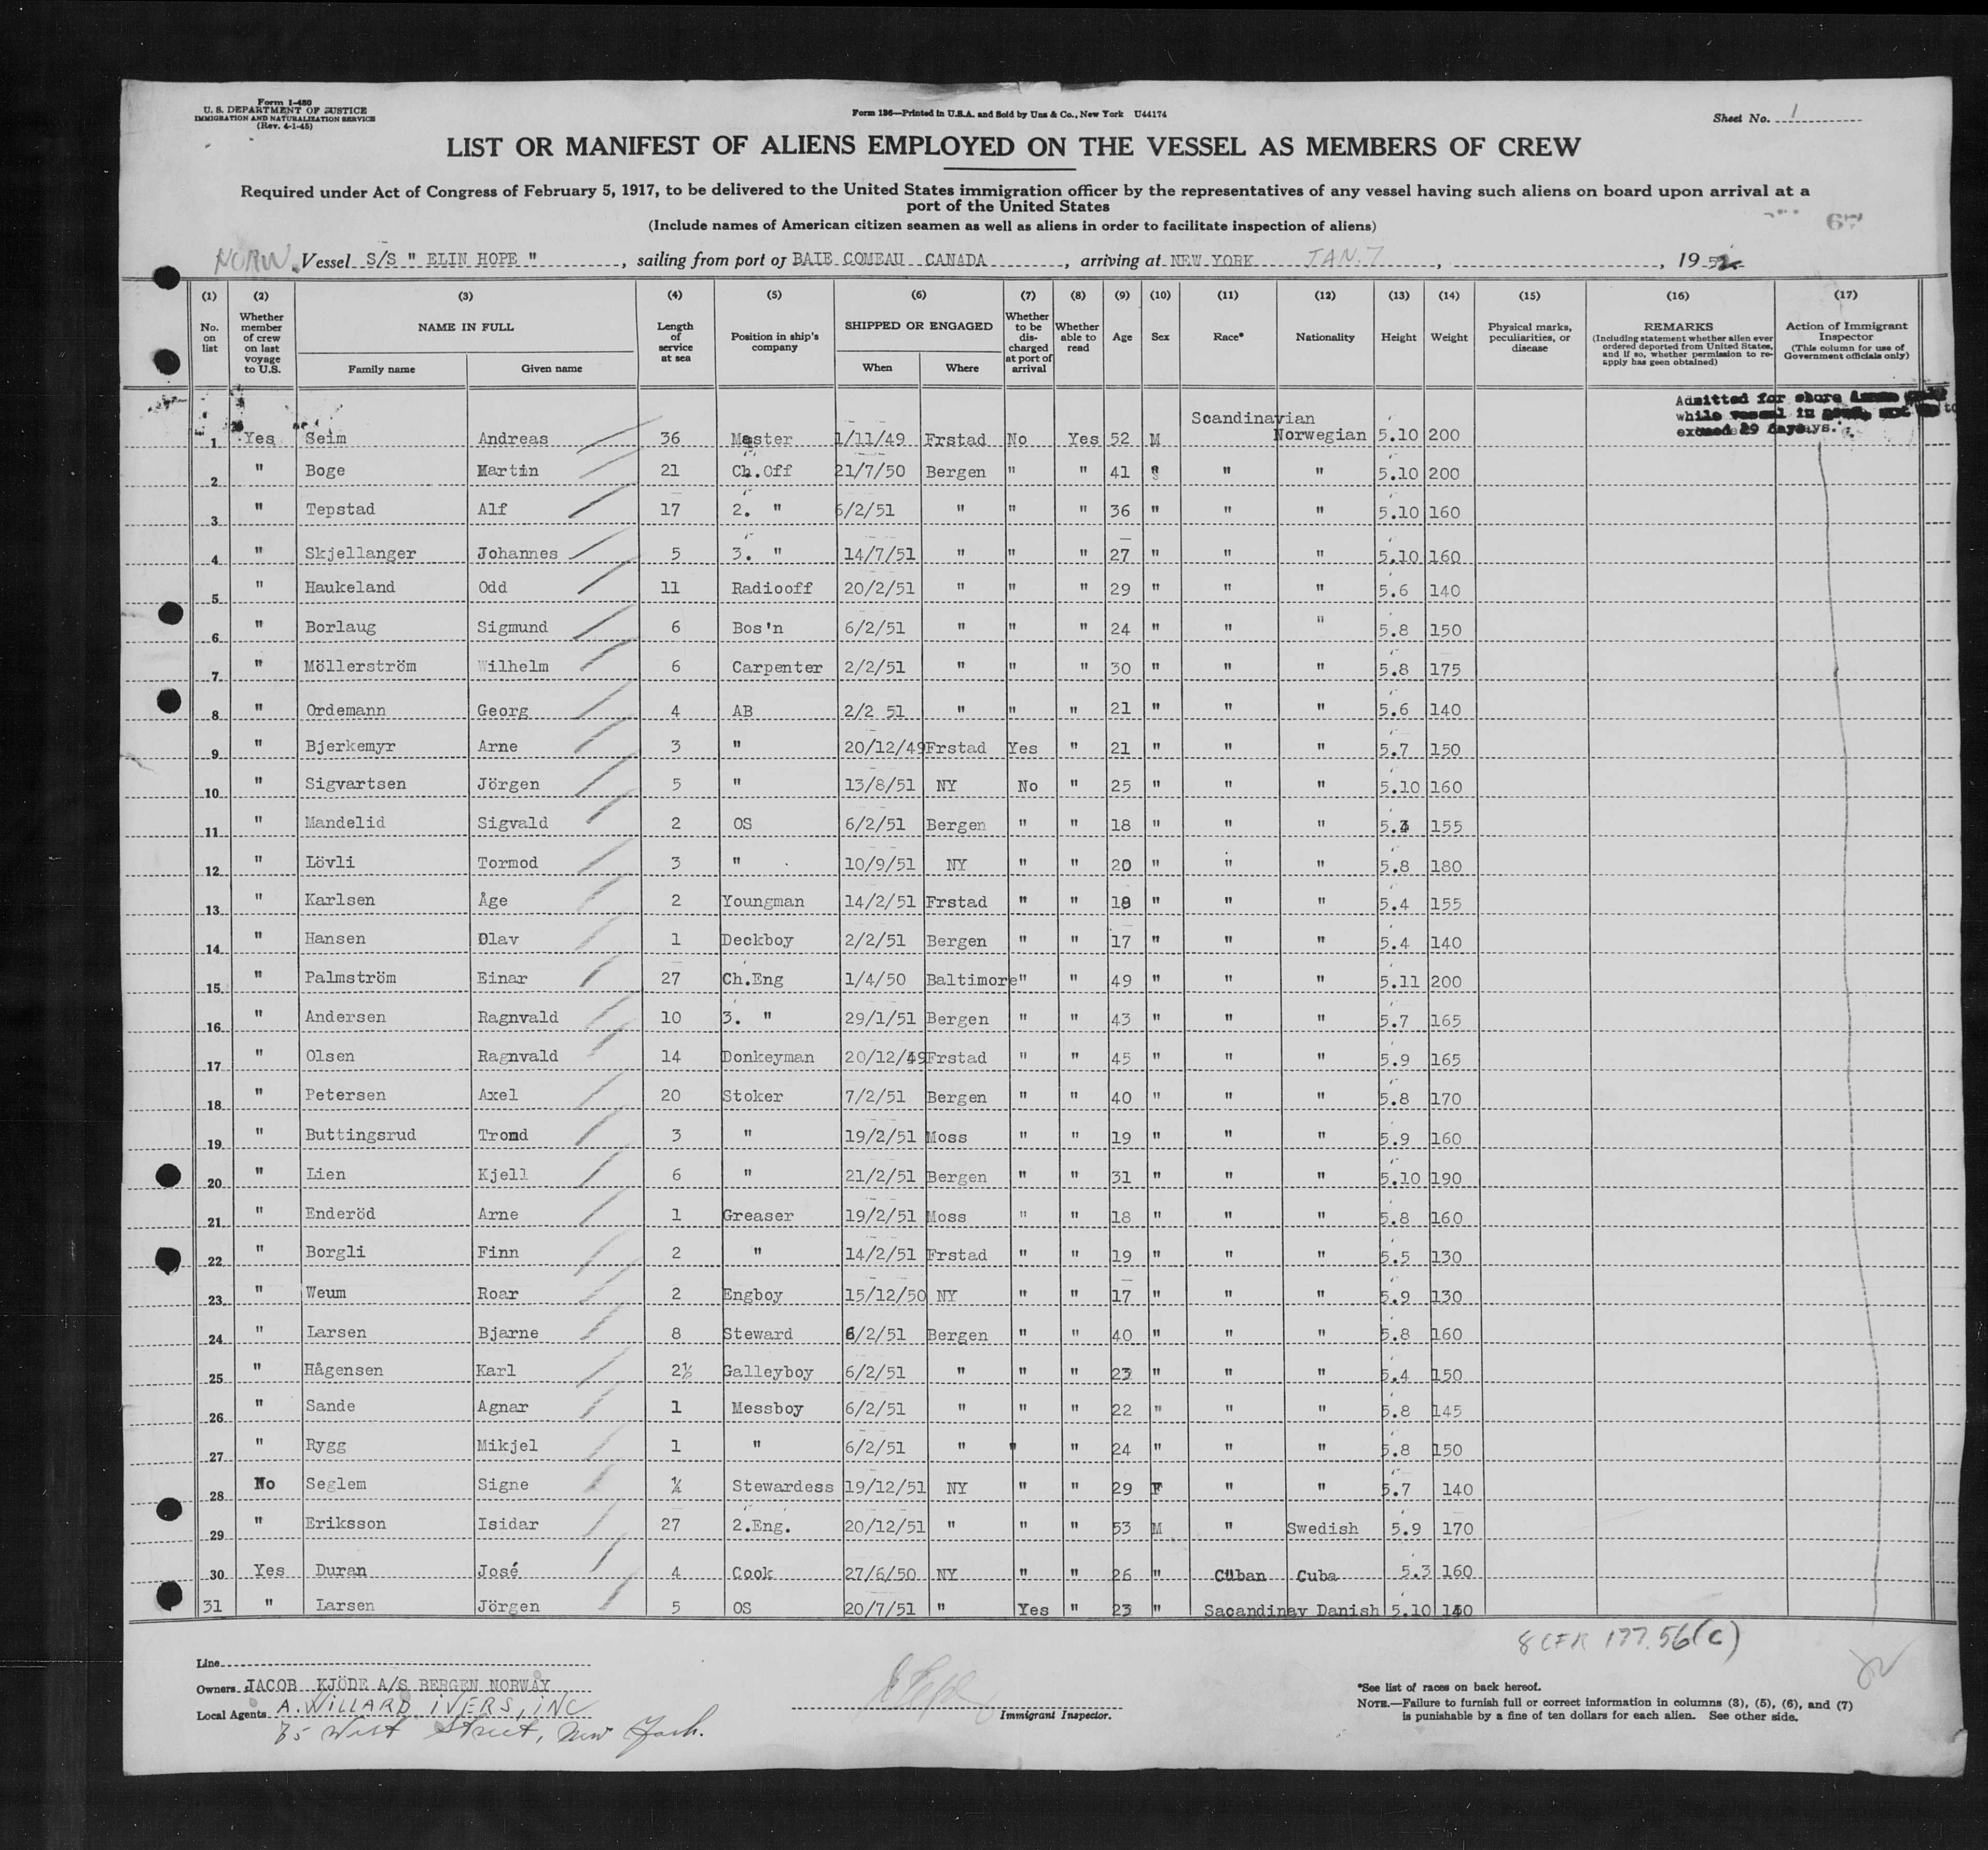 Form I-480
U. S. DEPARTMENT OF JUSTICE
IMMIGRATION AND NATURALIZATION SERVICE
(Rev. 4-1-45)
Form 136—Printed in U.S.A. and Sold by Unz & Co., New York U44174
Sheet No. 1
LIST OR MANIFEST OF ALIENS EMPLOYED ON THE VESSEL AS MEMBERS OF CREW
Required under Act of Congress of February 5, 1917, to be delivered to the United States immigration officer by the representatives of any vessel having such aliens on board upon arrival at a
port of the United States
(Include names of American citizen seamen as well as aliens in order to facilitate inspection of aliens)
67
NORW. Vessel S/S " ELIN HOPE ", sailing from port of BAIE COMEAU CANADA, arriving at NEW YORK JAN. 7, 1952
(1) (2) (3) (4) (5) (6) (7) (8) (9) (10) (11) (12) (13) (14) (15) (16) (17)
No. on list
Whether member of crew on last voyage to U.S.
NAME IN FULL
Family name Given name
Length of service at sea
Position in ship's company
SHIPPED OR ENGAGED
When Where
Whether to be discharged at port of arrival
Whether able to read
Age Sex Race* Nationality Height Weight
Physical marks, peculiarities, or disease
REMARKS
(Including statement whether alien ever ordered deported from United States, and if so, whether permission to reapply has geen obtained)
Action of Immigrant Inspector
(This column for use of Government officials only)
Admitted for shore
while vessel in
exceed 29 days.
Scandinavian
1 Yes Seim Andreas 36 Master 1/11/49 Frstad No Yes 52 M Norwegian 5.10 200
2 " Boge Martin 21 Ch.Off 21/7/50 Bergen " " 41 " " " 5.10 200
3 " Tepstad Alf 17 2. " 6/2/51 " " " 36 " " " 5.10 160
4 " Skjellanger Johannes 5 3. " 14/7/51 " " " 27 " " " 5.10 160
5 " Haukeland Odd 11 Radiooff 20/2/51 " " " 29 " " " 5.6 140
6 " Borlaug Sigmund 6 Bos'n 6/2/51 " " " 24 " " " 5.8 150
7 " Möllerström Wilhelm 6 Carpenter 2/2/51 " " " 30 " " " 5.8 175
8 " Ordemann Georg 4 AB 2/2 51 " " " 21 " " " 5.6 140
9 " Bjerkemyr Arne 3 " 20/12/49 Frstad Yes " 21 " " " 5.7 150
10 " Sigvartsen Jörgen 5 " 13/8/51 NY No " 25 " " " 5.10 160
11 " Mandelid Sigvald 2 OS 6/2/51 Bergen " " 18 " " " 155
12 " Lövli Tormod 3 " 10/9/51 NY " " 20 " " " 5.8 180
13 " Karlsen Åge 2 Youngman 14/2/51 Frstad " " 18 " " " 5.4 155
14 " Hansen Olav 1 Deckboy 2/2/51 Bergen " " 17 " " " 5.4 140
15 " Palmström Einar 27 Ch.Eng 1/4/50 Baltimore " " 49 " " " 5.11 200
16 " Andersen Ragnvald 10 3. " 29/1/51 Bergen " " 43 " " " 5.7 165
17 " Olsen Ragnvald 14 Donkeyman 20/12/49 Frstad " " 45 " " " 5.9 165
18 " Petersen Axel 20 Stoker 7/2/51 Bergen " " 40 " " " 5.8 170
19 " Buttingsrud Trond 3 " 19/2/51 Moss " " 19 " " " 5.9 160
20 " Lien Kjell 6 " 21/2/51 Bergen " " 31 " " " 5.10 190
21 " Enderöd Arne 1 Greaser 19/2/51 Moss " " 18 " " " 5.8 160
22 " Borgli Finn 2 " 14/2/51 Frstad " " 19 " " " 5.5 130
23 " Weum Roar 2 Engboy 15/12/50 NY " " 17 " " " 5.9 130
24 " Larsen Bjarne 8 Steward 6/2/51 Bergen " " 40 " " " 5.8 160
25 " Hågensen Karl 2½ Galleyboy 6/2/51 " " " 23 " " " 5.4 150
26 " Sande Agnar 1 Messboy 6/2/51 " " " 22 " " " 5.8 145
27 " Rygg Mikjel 1 " 6/2/51 " " " 24 " " " 5.8 150
28 No Seglem Signe ¼ Stewardess 19/12/51 NY " " 29 F " " 5.7 140
29 " Eriksson Isidar 27 2.Eng. 20/12/51 " " " 53 M " Swedish 5.9 170
30 Yes Duran José 4 Cook 27/6/50 NY " " 26 " Cuban Cuba 5.3 160
31 " Larsen Jörgen 5 OS 20/7/51 " Yes " 23 " Sacandinav Danish 5.10
8 CFR 177.56(c)
Line
Owners JACOB KJÖDE A/S BERGEN NORWAY
Local Agents A. WILLARD IVERS, INC
75 West Street, New York.
Immigrant Inspector.
*See list of races on back hereof.
NOTE.—Failure to furnish full or correct information in columns (3), (5), (6), and (7)
is punishable by a fine of ten dollars for each alien. See other side.